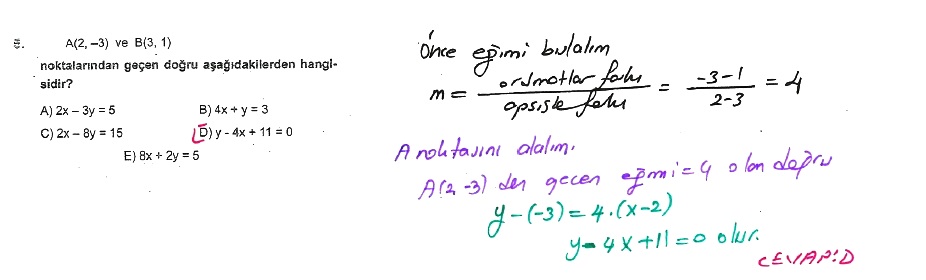 5. A(2, –3) ve B(3, 1)
noktalarından geçen doğru aşağıdakilerden hangi-
sidir?
A) 2x – 3y = 5 B) 4x + y = 3
C) 2x – 8y = 15 D) y - 4x + 11 = 0
E) 8x + 2y = 5
Önce eğimi bulalım
m = ordinatlar farkı / apsisler farkı = -3-1 / 2-3 = 4
A noktasını alalım.
A(2,-3) den geçen eğimi = 4 olan doğru
y-(-3) = 4.(x-2)
y-4x+11=0 olur.
CEVAP:D